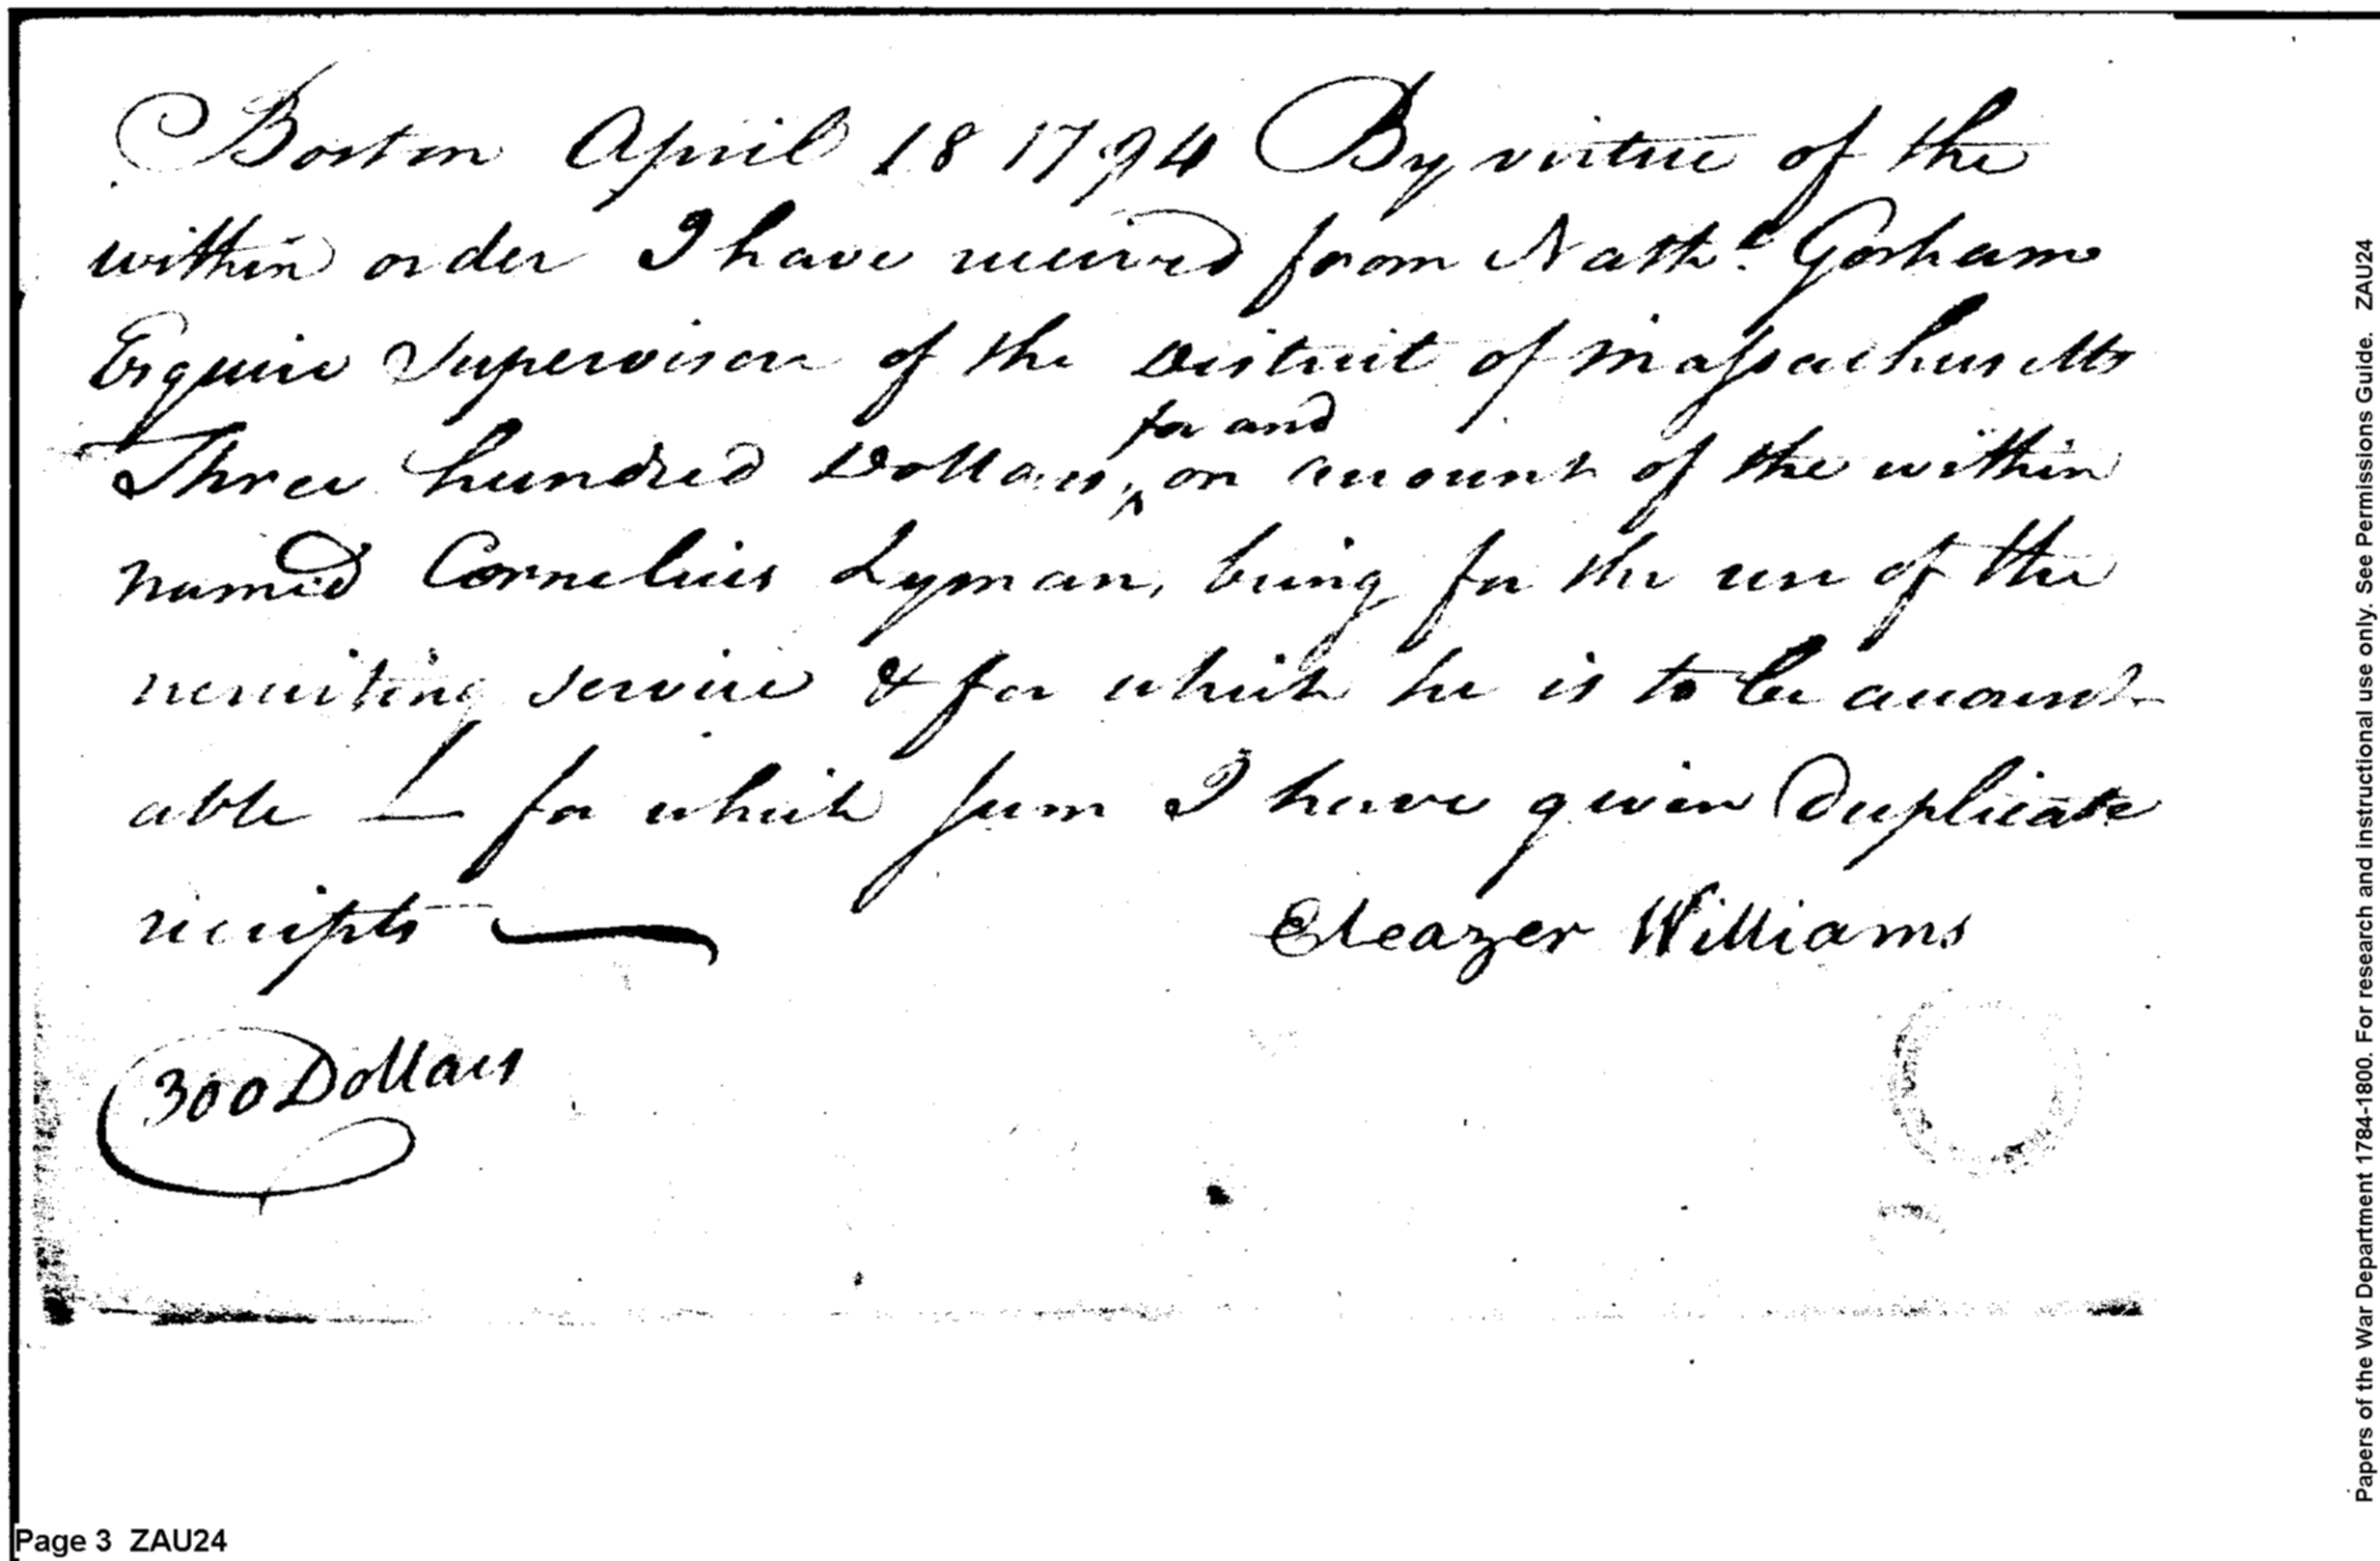 Boston April 18 1794 By virtue of the
within order I have received from Nathl. Gorham
Esquire Supervisor of the District of Massachusetts
for and
Three hundred Dollars, ^ on account of the within
named Cornelius Lyman, being for the use of the
recruiting service & for which he is to be account
able — for which sum I have given Duplicate
receipts —
Eleazer Williams
300 Dollars
Page 3 ZAU24
Papers of the War Department 1784-1800. For research and instructional use only. See Permissions Guide. ZAU24